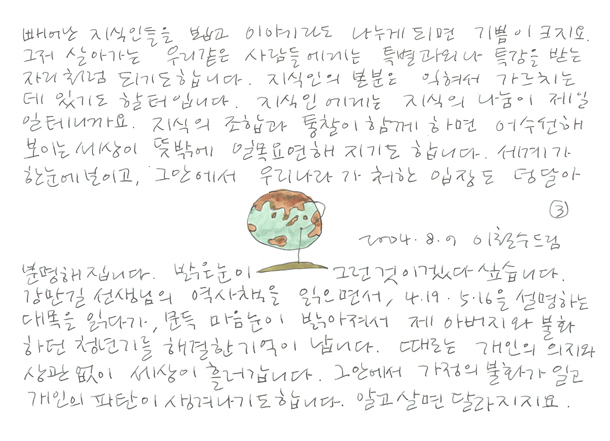 빼어난 지식인들을 보고 이야기라도 나누게 되면 기쁨이 크지요.
그저 살아가는 우리같은 사람들에게는 특별과외나 특강을 받는
자리처럼 되기도합니다. 지식인의 본분은 익혀서 가르치는
데 있기도 할 터입니다. 지식인에게는 지식의 나눔이 제일
일테니까요. 지식의 조합과 통찰이 함께 하면 어수선해
보이는 세상이 뜻밖에 일목요연해 지기도 합니다. 세계가
한눈에 보이고, 그안에서 우리나라가 처한 입장도 덩달아
③
2004. 8. 9 이철수드림
분명해집니다. 밝은눈이 그런것이겠다 싶습니다.
강만길 선생님의 역사책을 읽으면서, 4.19. 5.16을 설명하는
대목을 읽다가, 문득 마음눈이 밝아져서 제 아버지와 불화
하던 청년기를 해결한 기억이 납니다. 때로는 개인의 의지와
상관없이 세상이 흘러갑니다. 그안에서 가정의 불화가 일고
개인의 파탄이 생겨나기도합니다. 알고살면 달라지지요.